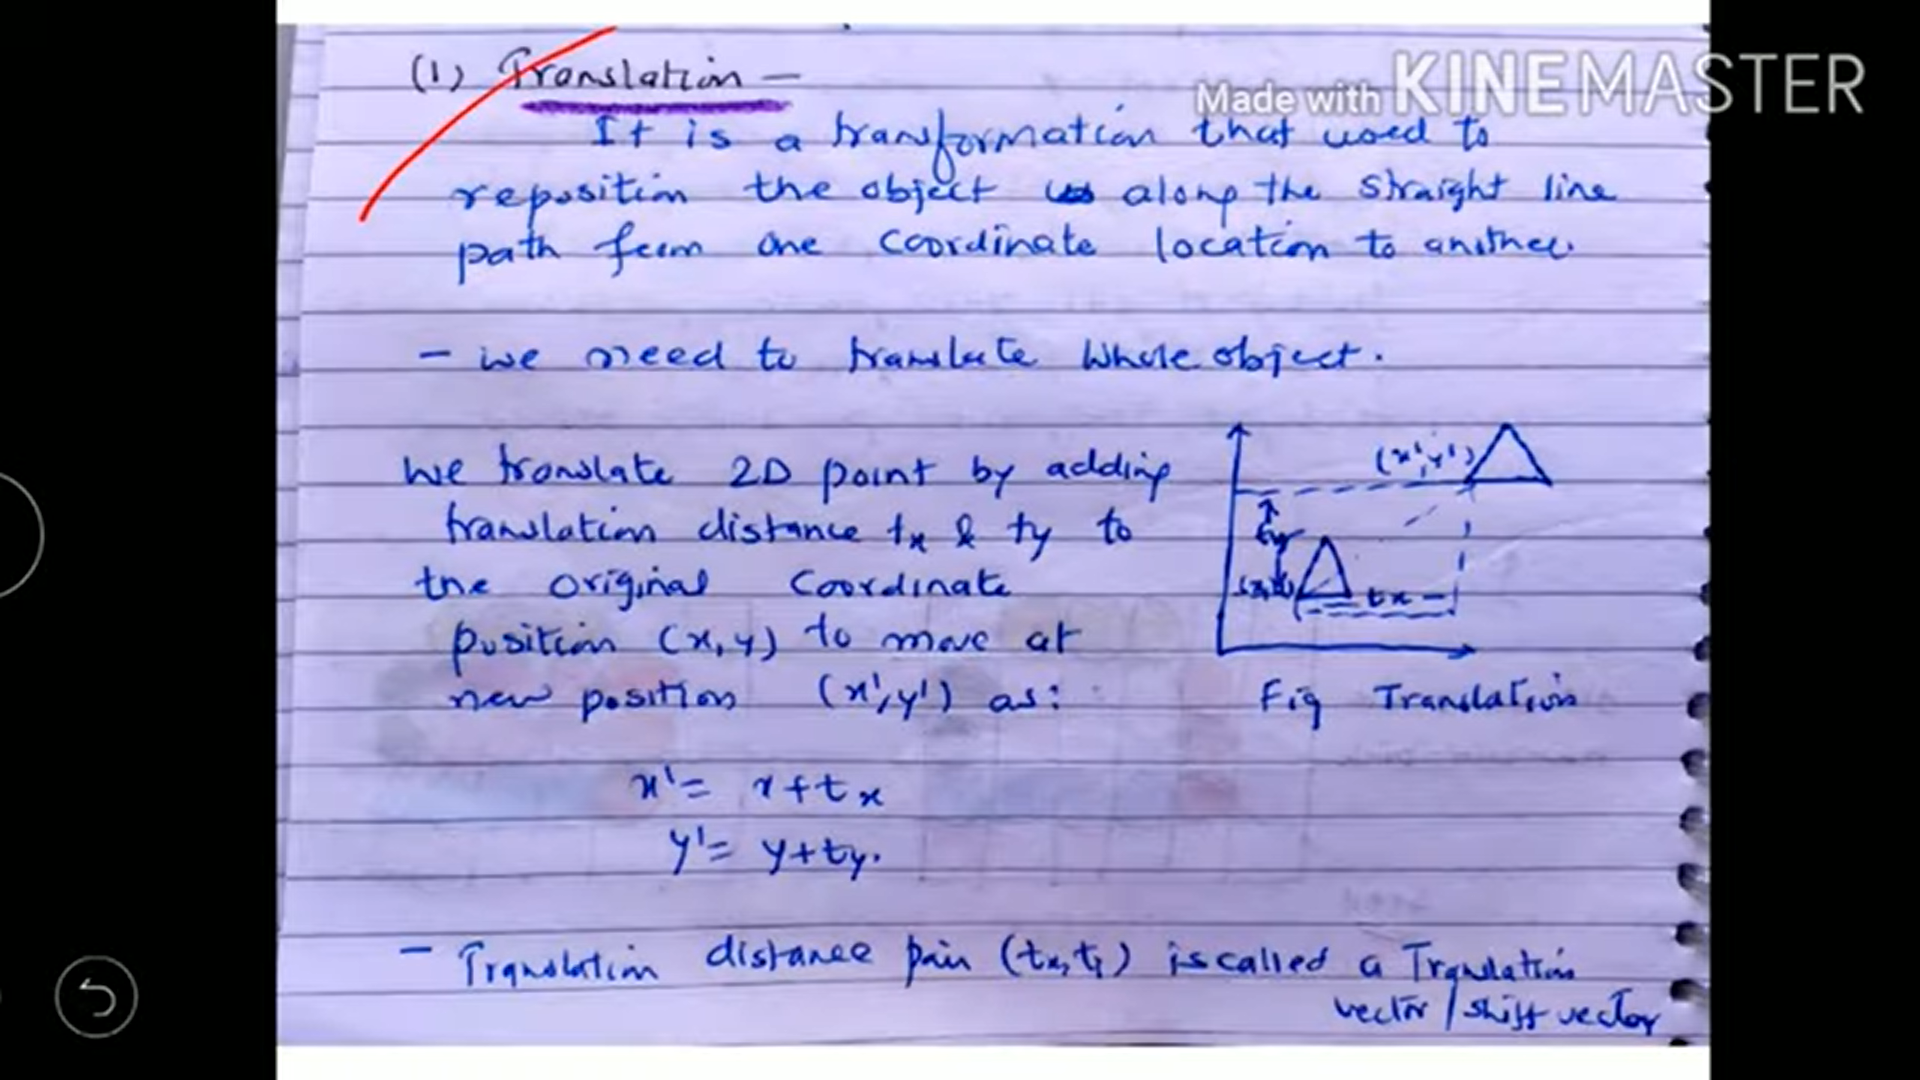 (1) Translation —
Made with KINEMASTER
It is a transformation that used to
reposition the object along the straight line
path from one coordinate location to another.
- we need to translate whole object.
We translate 2D point by adding
translation distance tx & ty to
the original coordinate
position (x,y) to move at
new position (x',y') as:
(x',y')
ty
tx
Fig Translation
x' = x+tx
y' = y+ty.
- Translation distance pair (tx,ty) is called a Translation
vector / shift vector